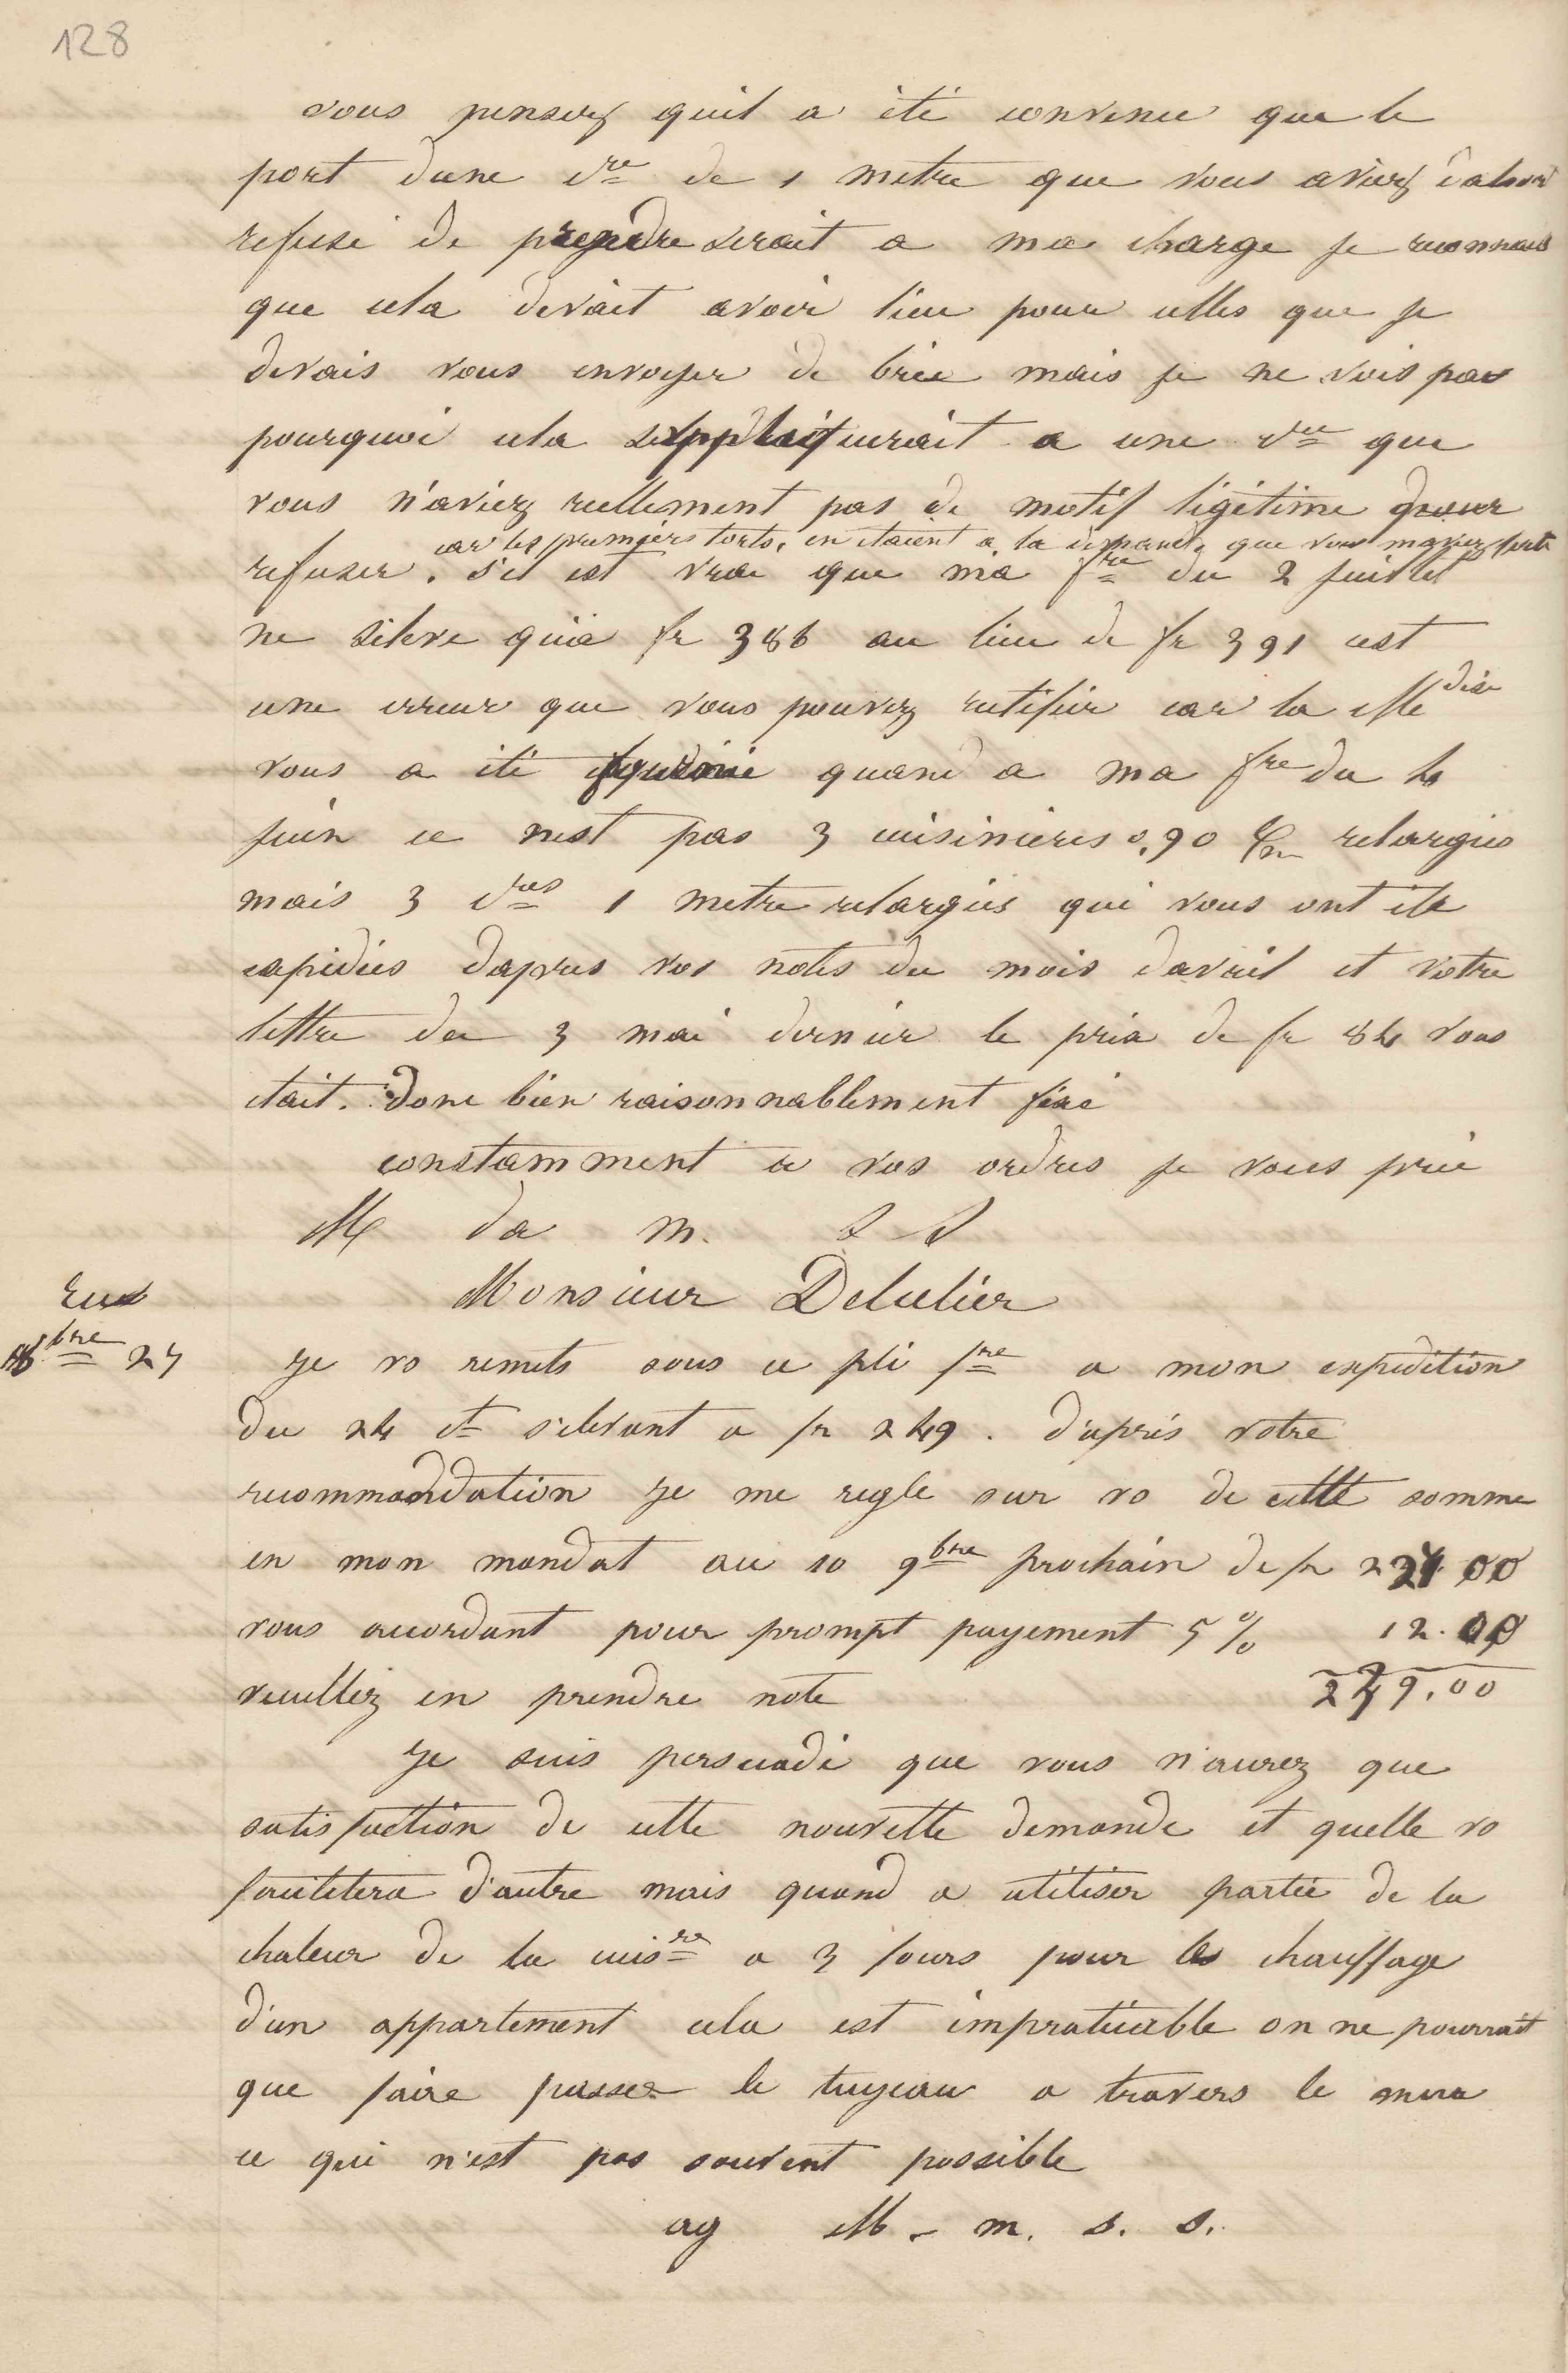 128
vous pensez quil a été convenu que le
port dune dre de 1 metre que vous aviez dabord
refusé de prendre serait a ma charge je reconnais
que cela devait avoir lieu pour celles que je
devais vous envoyer de brie mais je ne vois pas
pourquoi cela a une dre que
vous n'aviez reellement pas de motif légitime pour
car les premiers torts en étaient a la demande que vous maviez faite
refuser. s'il est vrai que ma fre du 2 juillet
ne séleve qu'à fr 386 au lieu de fr 391 cest
une erreur que vous pouvez rectifier car la Mdise
vous a été fournie quand a ma fre du 4
juin ce nest pas 3 cuisinieres 0,90 c/m relargies
mais 3 dres 1 metre relargies qui vous ont été
expediées dapres vos notes du mois davril et votre
lettre du 3 mai dernier le prix de fr 84 vous
était donc bien raisonnablement fixé
constamment a vos ordres je vous prie
M da m. S S
Monsieur Delulier
Rue
8bre 27
Je vo remets sous ce pli fre a mon expedition
du 24 ct s'élevant a fr 249. d'après votre
recommandation je me regle sur vo de cette somme
en mon mandat au 10 9bre prochain de fr 227 00
vous accordant pour prompt payement 5% 12.00
veuillez en prendre note 239.00
Je suis persuadé que vous n'aurez que
satisfaction de cette nouvelle demande et quelle vo
facilitera d'autre mais quand a utiliser partie de la
chaleur de la cuisre a 3 fours pour les chauffage
d'un appartement cela est impraticable on ne pourrait
que faire passer le tuyeau a travers le mur
ce qui n'est pas souvent possible
ag M - m. s. s.